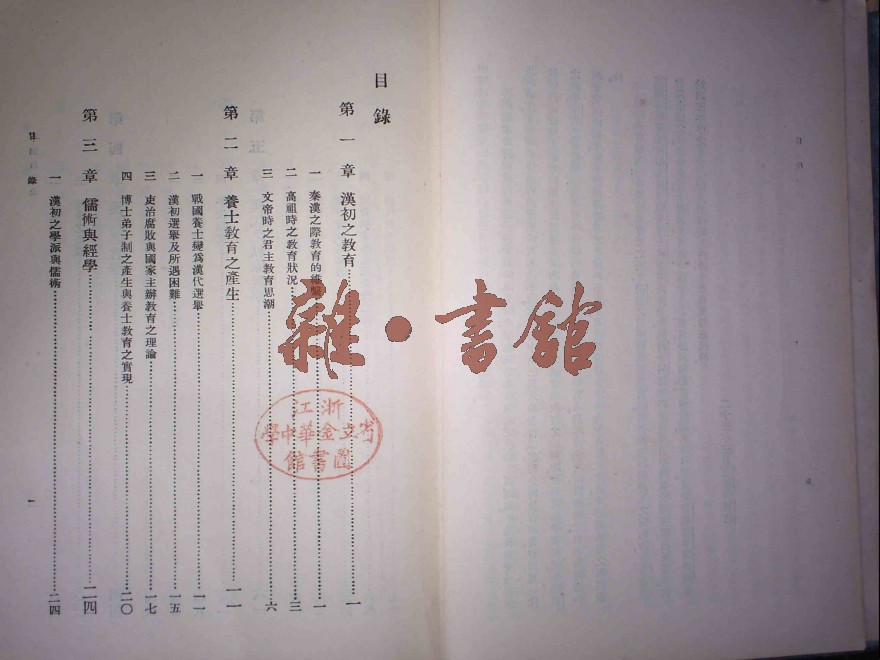 目錄
第一章 漢初之教育……一
一 秦漢之際教育的維繫……一
二 高祖時之教育狀況……三
三 文帝時之君主教育思潮……六
第二章 養士教育之產生……一一
一 戰國養士變爲漢代選舉……一一
二 漢初選舉及所遇困難……一五
三 吏治腐敗與國家主辦教育之理論……一七
四 博士弟子制之產生與養士教育之實現……二〇
第三章 儒術與經學……二四
一 漢初之學派與儒術……二四
目錄
一
雜·書館
浙江
省立金華中學
圖書館